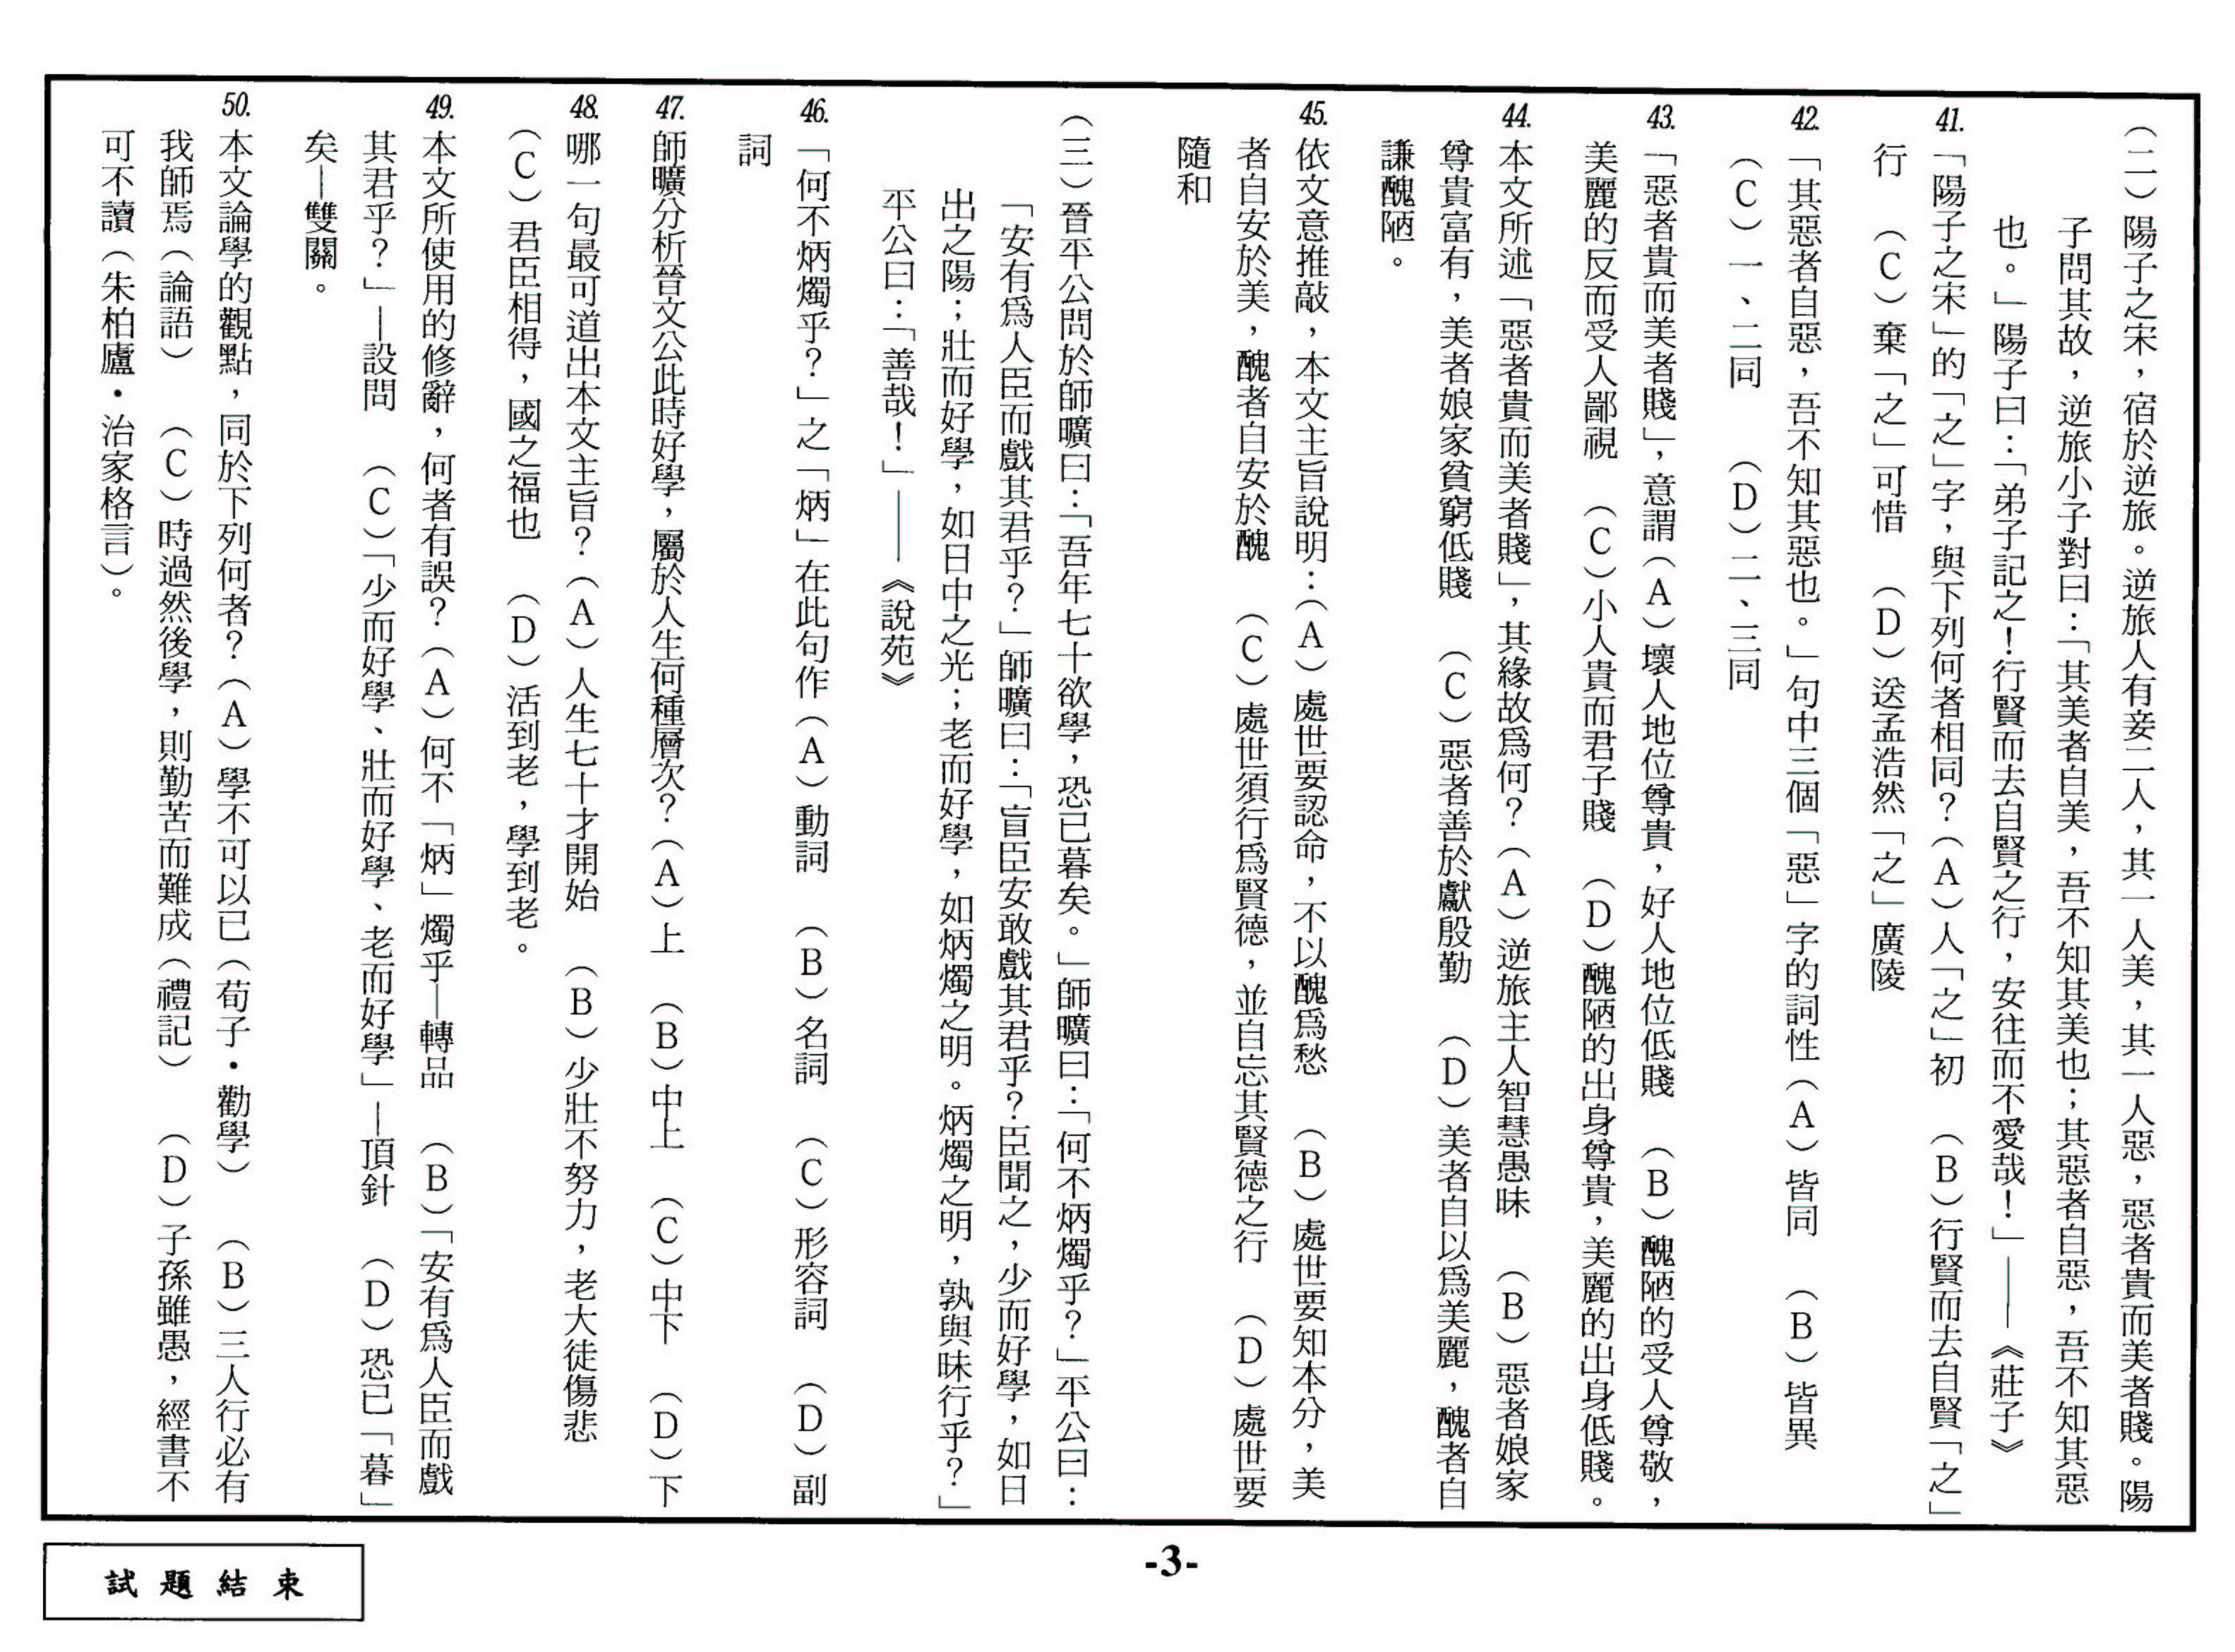 （二）陽子之宋，宿於逆旅。逆旅人有妾二人，其一人美，其一人惡，惡者貴而美者賤。陽
子問其故，逆旅小子對曰：「其美者自美，吾不知其美也；其惡者自惡，吾不知其惡
也。」陽子曰：「弟子記之！行賢而去自賢之行，安往而不愛哉！」——《莊子》
41.「陽子之宋」的「之」字，與下列何者相同？（A）人「之」初　（B）行賢而去自賢「之」
行　（C）棄「之」可惜　（D）送孟浩然「之」廣陵
42.「其惡者自惡，吾不知其惡也。」句中三個「惡」字的詞性（A）皆同　（B）皆異
（C）一、二同　（D）二、三同
43.「惡者貴而美者賤」，意謂（A）壞人地位尊貴，好人地位低賤　（B）醜陋的受人尊敬，
美麗的反而受人鄙視　（C）小人貴而君子賤　（D）醜陋的出身尊貴，美麗的出身低賤。
44.本文所述「惡者貴而美者賤」，其緣故為何？（A）逆旅主人智慧愚昧　（B）惡者娘家
尊貴富有，美者娘家貧窮低賤　（C）惡者善於獻殷勤　（D）美者自以為美麗，醜者自
謙醜陋。
45.依文意推敲，本文主旨說明：（A）處世要認命，不以醜為愁　（B）處世要知本分，美
者自安於美，醜者自安於醜　（C）處世須行為賢德，並自忘其賢德之行　（D）處世要
隨和
（三）晉平公問於師曠曰：「吾年七十欲學，恐已暮矣。」師曠曰：「何不炳燭乎？」平公曰：
「安有為人臣而戲其君乎？」師曠曰：「盲臣安敢戲其君乎？臣聞之，少而好學，如日
出之陽；壯而好學，如日中之光；老而好學，如炳燭之明。炳燭之明，孰與昧行乎？」
平公曰：「善哉！」——《說苑》
46.「何不炳燭乎？」之「炳」在此句作（A）動詞　（B）名詞　（C）形容詞　（D）副
詞
47.師曠分析晉文公此時好學，屬於人生何種層次？（A）上　（B）中上　（C）中下　（D）下
48.哪一句最可道出本文主旨？（A）人生七十才開始　（B）少壯不努力，老大徒傷悲
（C）君臣相得，國之福也　（D）活到老，學到老。
49.本文所使用的修辭，何者有誤？（A）何不「炳」燭乎—轉品　（B）「安有為人臣而戲
其君乎？」—設問　（C）「少而好學、壯而好學、老而好學」—頂針　（D）恐已「暮」
矣—雙關。
50.本文論學的觀點，同於下列何者？（A）學不可以已（荀子・勸學）　（B）三人行必有
我師焉（論語）　（C）時過然後學，則勤苦而難成（禮記）　（D）子孫雖愚，經書不
可不讀（朱柏廬・治家格言）。
-3-
試題結束